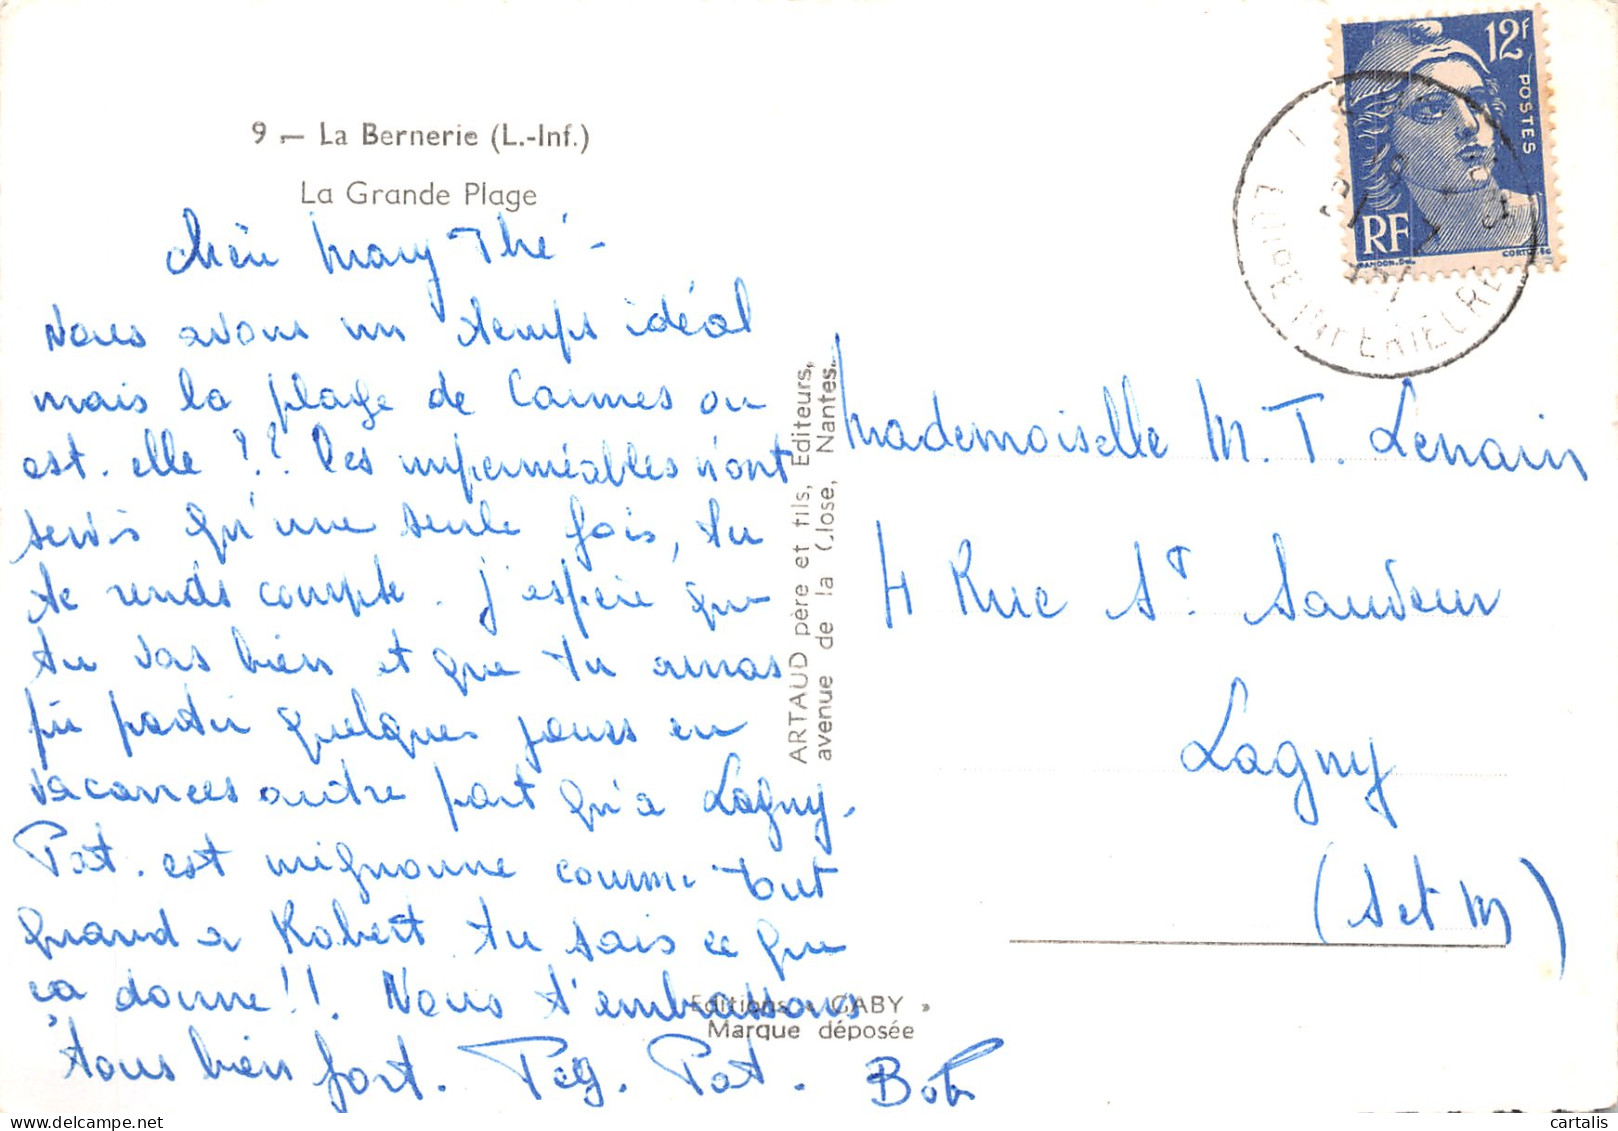 9 — La Bernerie (L.-Inf.)
La Grande Plage
chère Mary Thé -
Nous avons un temps idéal
mais la plage de Cannes ou
est-elle ?? les imperméables n'ont
servis qu'une seule fois, tu
te rends compte. J'espère que
tu vas bien et que tu auras
pu partir quelques jours en
vacances autre part qu'a Lagny.
Pat. est mignonne comme tout
quand a Robert tu sais ce que
ça donne!!. Nous t'embrassons
tous bien fort. Peg. Pat. Bob
ARTAUD père et fils, Editeurs,
avenue de la Close, Nantes.
Editions « GABY »
Marque déposée
12f
POSTES
RF
LOIRE INFERIEURE
Mademoiselle M. T. Lenain
4 Rue St. Sauveur
Lagny
(S et M)
cartalis
www.delcampe.net